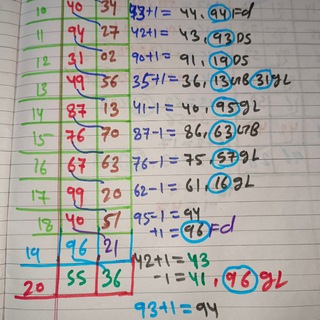 10 40 34 93+1= 44, 94 Fd
11 94 27 42+1= 43, 93 DS
12 31 02 90+1= 91, 19 DS
13 49 56 35+1= 36, 13 GB 31 GL
14 87 13 41-1= 40, 95 GL
15 76 70 87-1= 86, 63 GB
16 67 63 76-1= 75, 57 GL
17 99 20 62-1= 61, 16 GL
18 40 51 95-1= 94
+1= 96 Fd
19 96 21 42+1= 43
20 55 36 -1= 41, 96 GL
93+1= 94